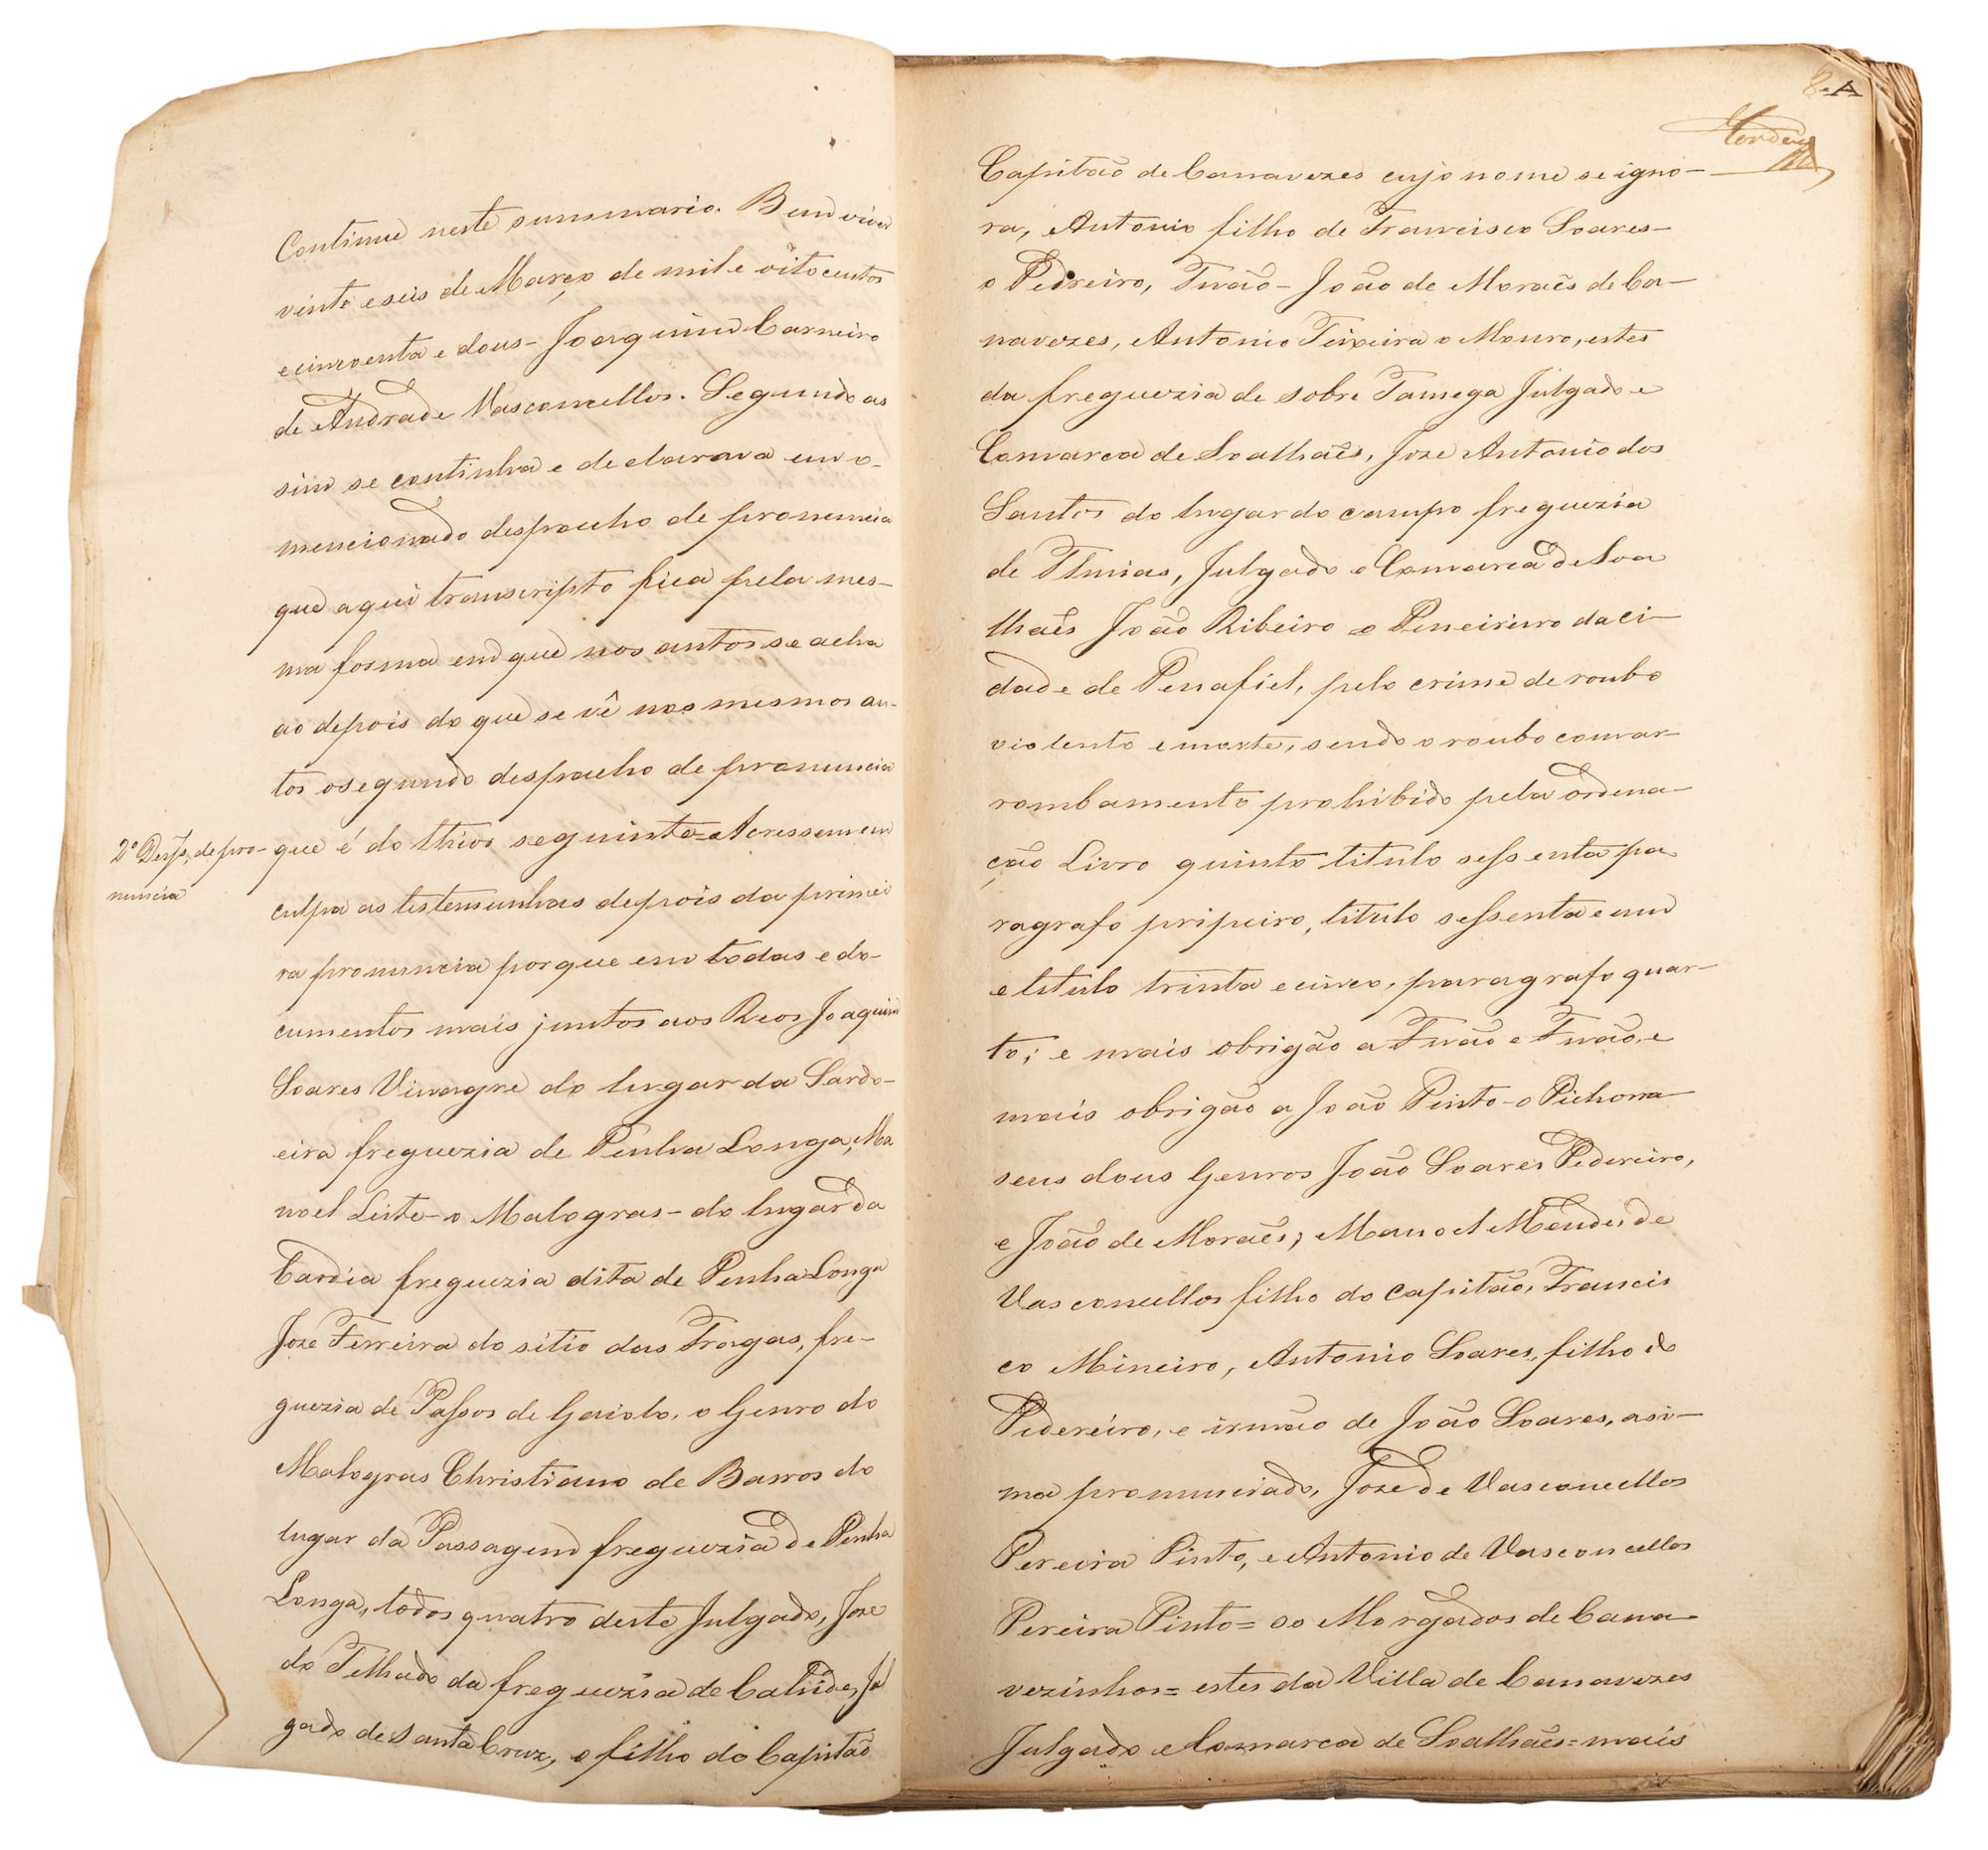 Continue neste summario. Bemviver
vinte e seis de Março de mil e oitocentos
e cincoenta e dous - Joaquim Carneiro
de Andrade Vasconcellos. Segundo as
sim se continha e declarava em o-
mencionado despacho de pronuncia
que aqui transcripto fica pela mes-
ma forma em que nos autos se acha
ao depois do que se vê nos mesmos au-
tos o segundo despacho de pronuncia
2º Desp. de pro-
nuncia
que é do theor seguinte = Acressem em
culpa as testemunhas depois da primei
ra pronuncia porque em todas e do-
cumentos mais juntos aos Reos Joaquim
Soares Vinagre do lugar da Sardo-
eira freguezia de Penha Longa, Ma
noel Leite - o Malogras - do lugar da
Cardia freguezia dita de Penha Longa
Joze Ferreira do sitio das Fragas, fre-
guezia de Passos de Gaiolo, o Genro do
Malogras Christiano de Barros do
lugar da Passagem freguezia de Penha
Longa, todos quatro deste Julgado, Joze
do Telhado da freguezia de Cahide, Jul
gado de Santa Cruz, o filho do Capitão
8 A
Capitão de Canavezes cujo nome se igno-
ra, Antonio filho de Francisco Soares -
o Pedreiro, Tuão - João de Moraẽs de Ca-
navezes, Antonio Teixeira o Mouro, estes
da freguezia de sobre Tamega Julgado e
Comarca de Soalhaẽs, Joze Antonio dos
Santos do lugar do campo freguezia
de Julgado e Comarca de Soa
lhaẽs João Ribeiro o Peneireiro da ci-
dade de Penafiel, pelo crime de roubo
violento e morte, sendo o roubo com ar-
rombamento prohibido pela ordena-
ção Livro quinto titulo sessenta pa
ragrafo pripeiro, titulo sessenta e um
e titulo trinta e cinco, paragrafo quar-
to; e mais obrigão a Tuão e Tuão, e
mais obrigão a João Pinto - o Pichorra
seus dous Genros João Soares Pedereiro,
e João de Moraẽs; Manoel Mendes de
Vasconcellos filho do capitão, Francis
co Mineiro, Antonio Soares, filho do
Pedereiro, e irmão de João Soares, asi-
ma pronunciado, Joze de Vasconcellos
Pereira Pinto, e Antonio de Vasconcellos
Pereira Pinto = os Morgados de Cana
vezinhos = estes da Villa de Canavezes
Julgado e Comarca de Soalhaẽs = mais